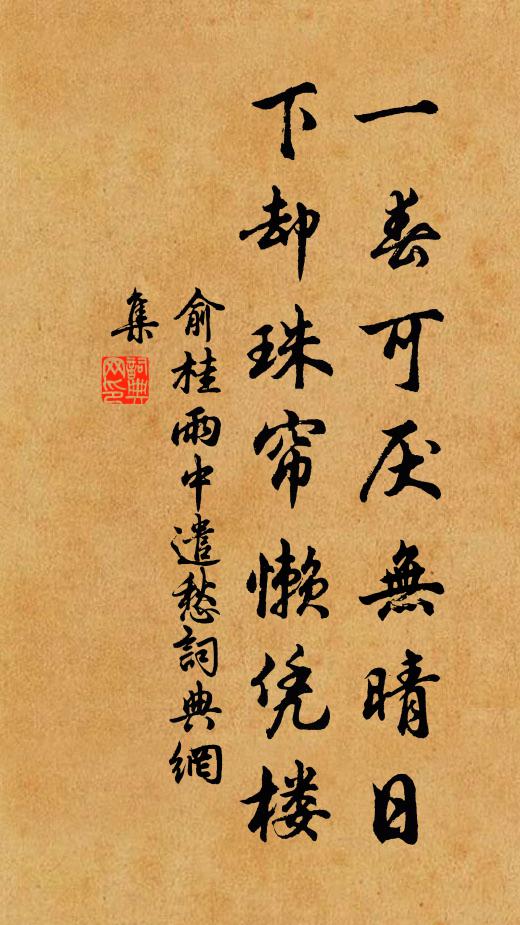 一春可厌無晴日
下却珠帘懒凭楼
俞桂雨中遣愁詞典網
集
詞典网印